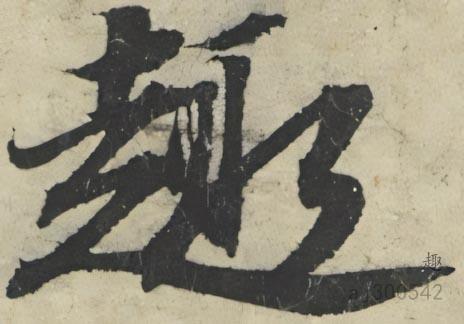 趣
趣
a j300542